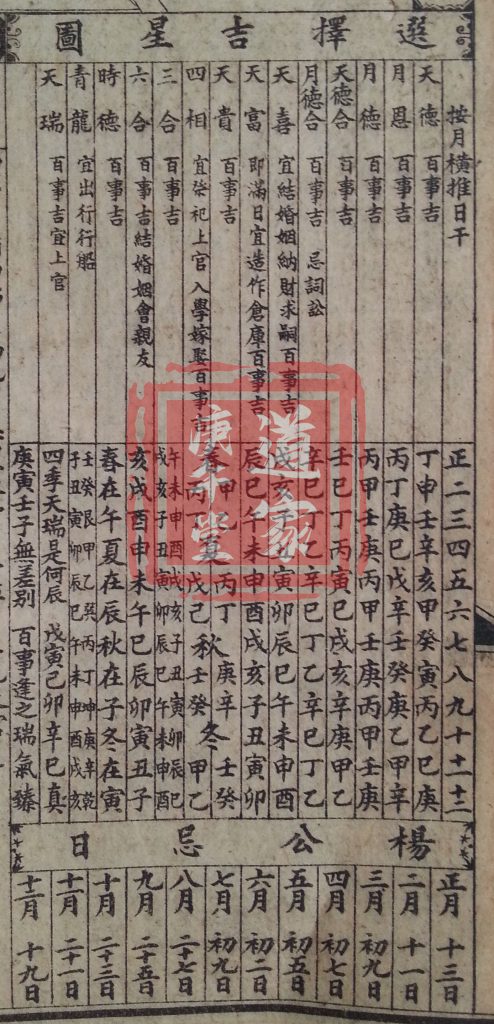 選擇吉星圖
按月橫推日干 正二三四五六七八九十十一十二
天德 百事吉 丁申壬辛亥甲癸寅丙乙巳庚
月恩 百事吉 丙丁庚巳戊辛壬癸庚乙甲辛
月德 百事吉 丙甲壬庚丙甲壬庚丙甲壬庚
天德合 百事吉 壬巳丁丙寅巳戊亥辛庚甲乙
月德合 百事吉 忌詞訟 辛巳丁乙辛巳丁乙辛巳丁乙
天喜 宜結婚姻納財求嗣百事吉 戌亥子丑寅卯辰巳午未申酉
天富 即滿日宜造作倉庫百事吉 辰巳午未申酉戌亥子丑寅卯
天貴 百事吉 春甲乙夏丙丁秋庚辛冬壬癸
四相 宜祭祀上官入學嫁娶百事吉 丙丁戊己壬癸甲乙
三合 百事吉 午未申酉戌亥子丑寅卯辰巳
戌亥子丑寅卯辰巳午未申酉
六合 百事吉結婚姻會親友 亥戌酉申未午巳辰卯寅丑子
時德 百事吉 春在午夏在辰秋在子冬在寅
青龍 宜出行行船 壬癸艮甲乙巽丙丁坤庚辛乾
子丑寅卯辰巳午未申酉戌亥
天瑞 百事吉宜上官 四季天瑞是何辰 戊寅己卯辛巳真
庚寅壬子無差別 百事逢之瑞氣臻
楊公忌日
正月 十三日
二月 十一日
三月 初九日
四月 初七日
五月 初五日
六月 初二日
七月 初九日
八月 二十七日
九月 二十五日
十月 二十三日
十一月 二十一日
十二月 十九日
道家
庚千堂